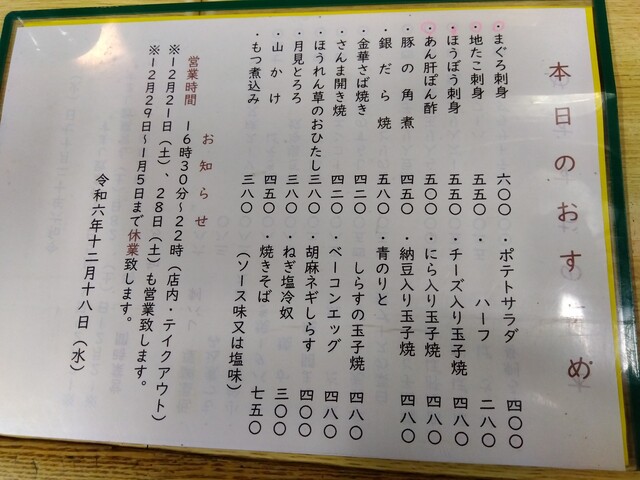 本日のおすすめ
・まぐろ刺身 六〇〇
・地たこ刺身 五五〇
・ほうぼう刺身 五五〇
・あん肝ぽん酢 五〇〇
・豚の角煮 四五〇
・銀だら焼 五八〇
・金華さば焼き 四二〇
・さんま開き焼 四二〇
・ほうれん草のおひたし 三八〇
・月見とろろ 三八〇
・山かけ 四五〇
・もつ煮込み 三八〇
・ポテトサラダ 四〇〇
・ハーフ 二八〇
・チーズ入り玉子焼 四八〇
・にら入り玉子焼 四八〇
・納豆入り玉子焼 四八〇
・青のりと
しらすの玉子焼 四八〇
・ベーコンエッグ 四八〇
・胡麻ネギしらす 四〇〇
・ねぎ塩冷奴 三〇〇
・焼きそば 七五〇
(ソース味又は塩味)
お知らせ
営業時間 16時30分~22時(店内・テイクアウト)
※12月21日(土)、28日(土)も営業致します。
※12月29日~1月5日まで休業致します。
令和六年十二月十八日(水)